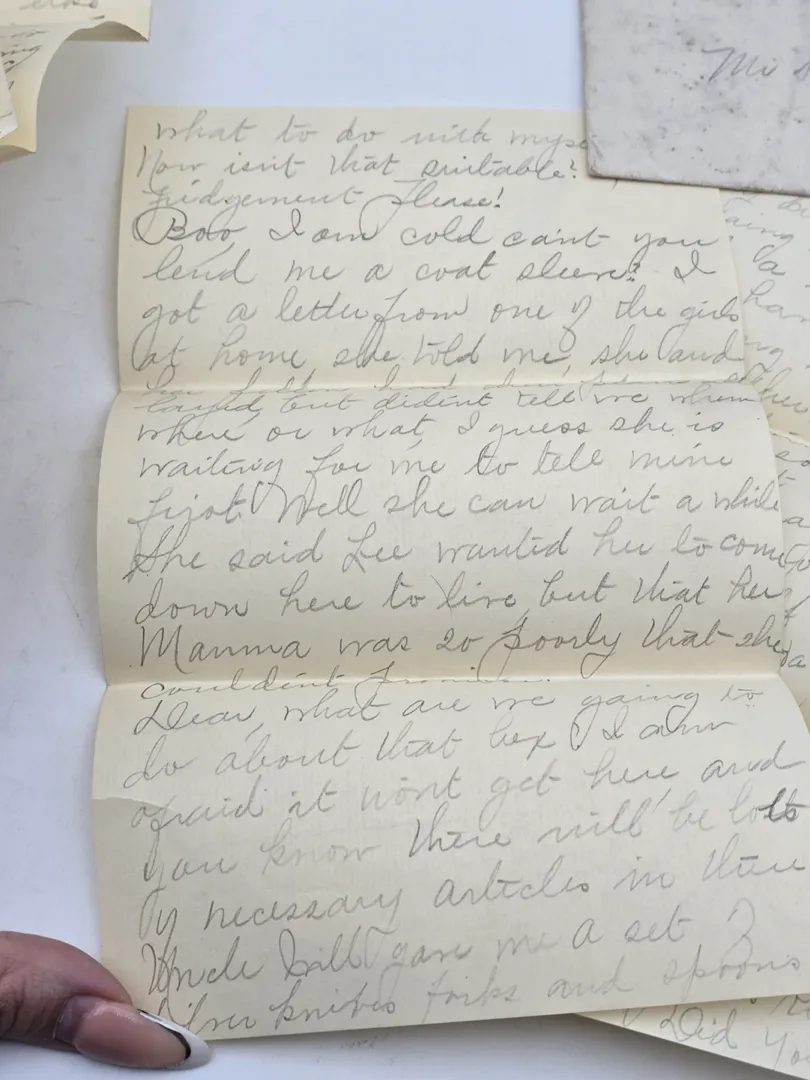 what to do with
Now isn't that suitable?
Judgement Please!
Boo, I am cold cant you
lend me a coat sleeve? I
got a letter from one of the girls
at home she told me, she and
but dident tell me when
where or what, I guess she is
waiting for me to tell mine
first. Well she can wait a while
She said Lee wanted her to come
down here to live, but that her
Mamma was so poorly that she
couldent
Dear, what are we going to
do about that box I am
afraid it wont get here, and
you know there will be lots
of necessary articles in there
Uncle Will gave me a set of
silver knives forks and spoons
Did you